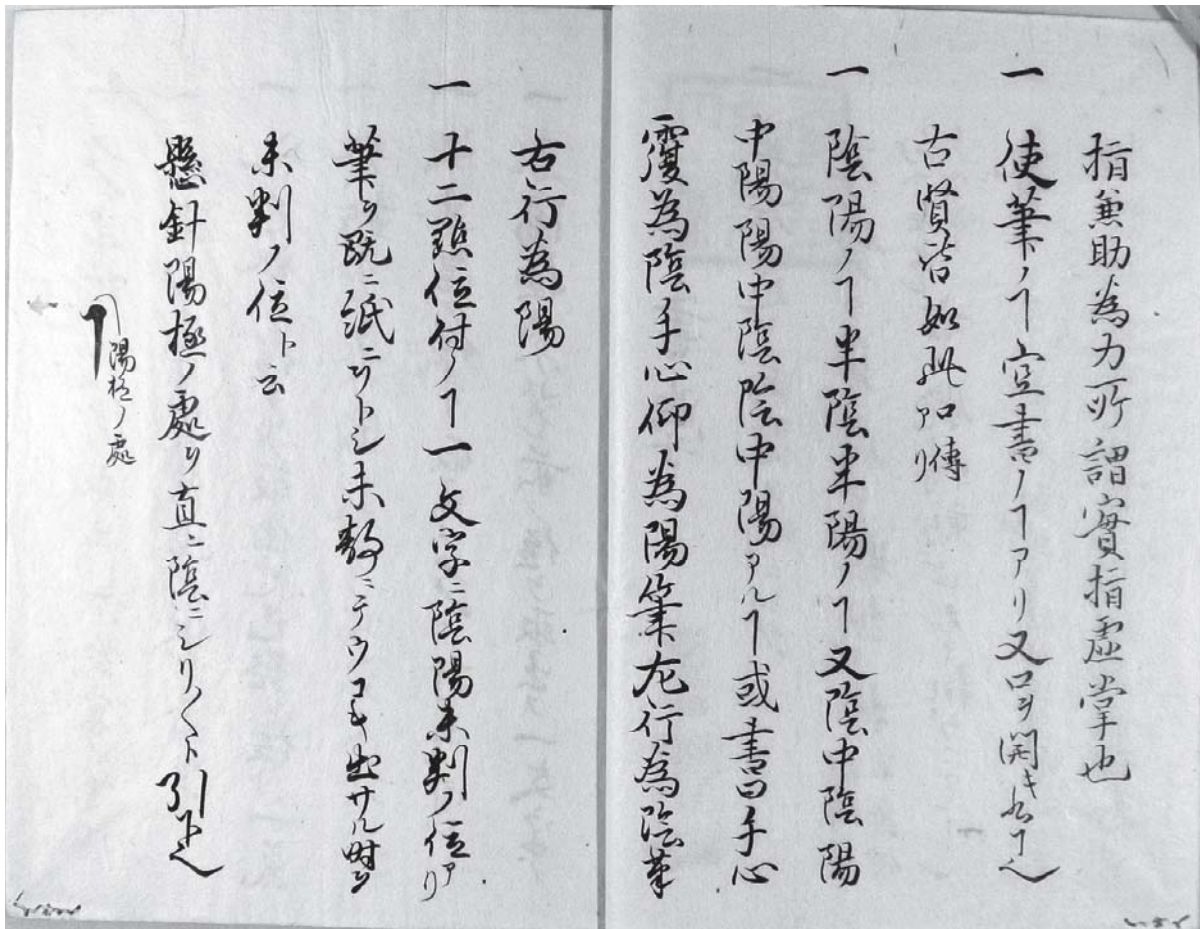 指兼助為力所謂實指虚掌也
一 使筆ノヿ空書ノヿアリ又口ヲ開キ ヿ也
古賢皆如此口傳アリ
一 陰陽ノヿ半陰半陽ノヿ又陰中陰陽
中陽陽中陰陰中陽アルヿ或書曰手心
覆為陰手心仰為陽筆左行為陰筆
右行為陽
一 十二點位付ノヿ一文字ニ陰陽未判ノ位アリ
筆ヲ既ニ紙ニ トシ未 ニテウコキ出サル時ヲ
未判ノ位ト云
懸針陽極ノ處ヨリ直ニ陰ニシリ〱ト引下也
陽極ノ處